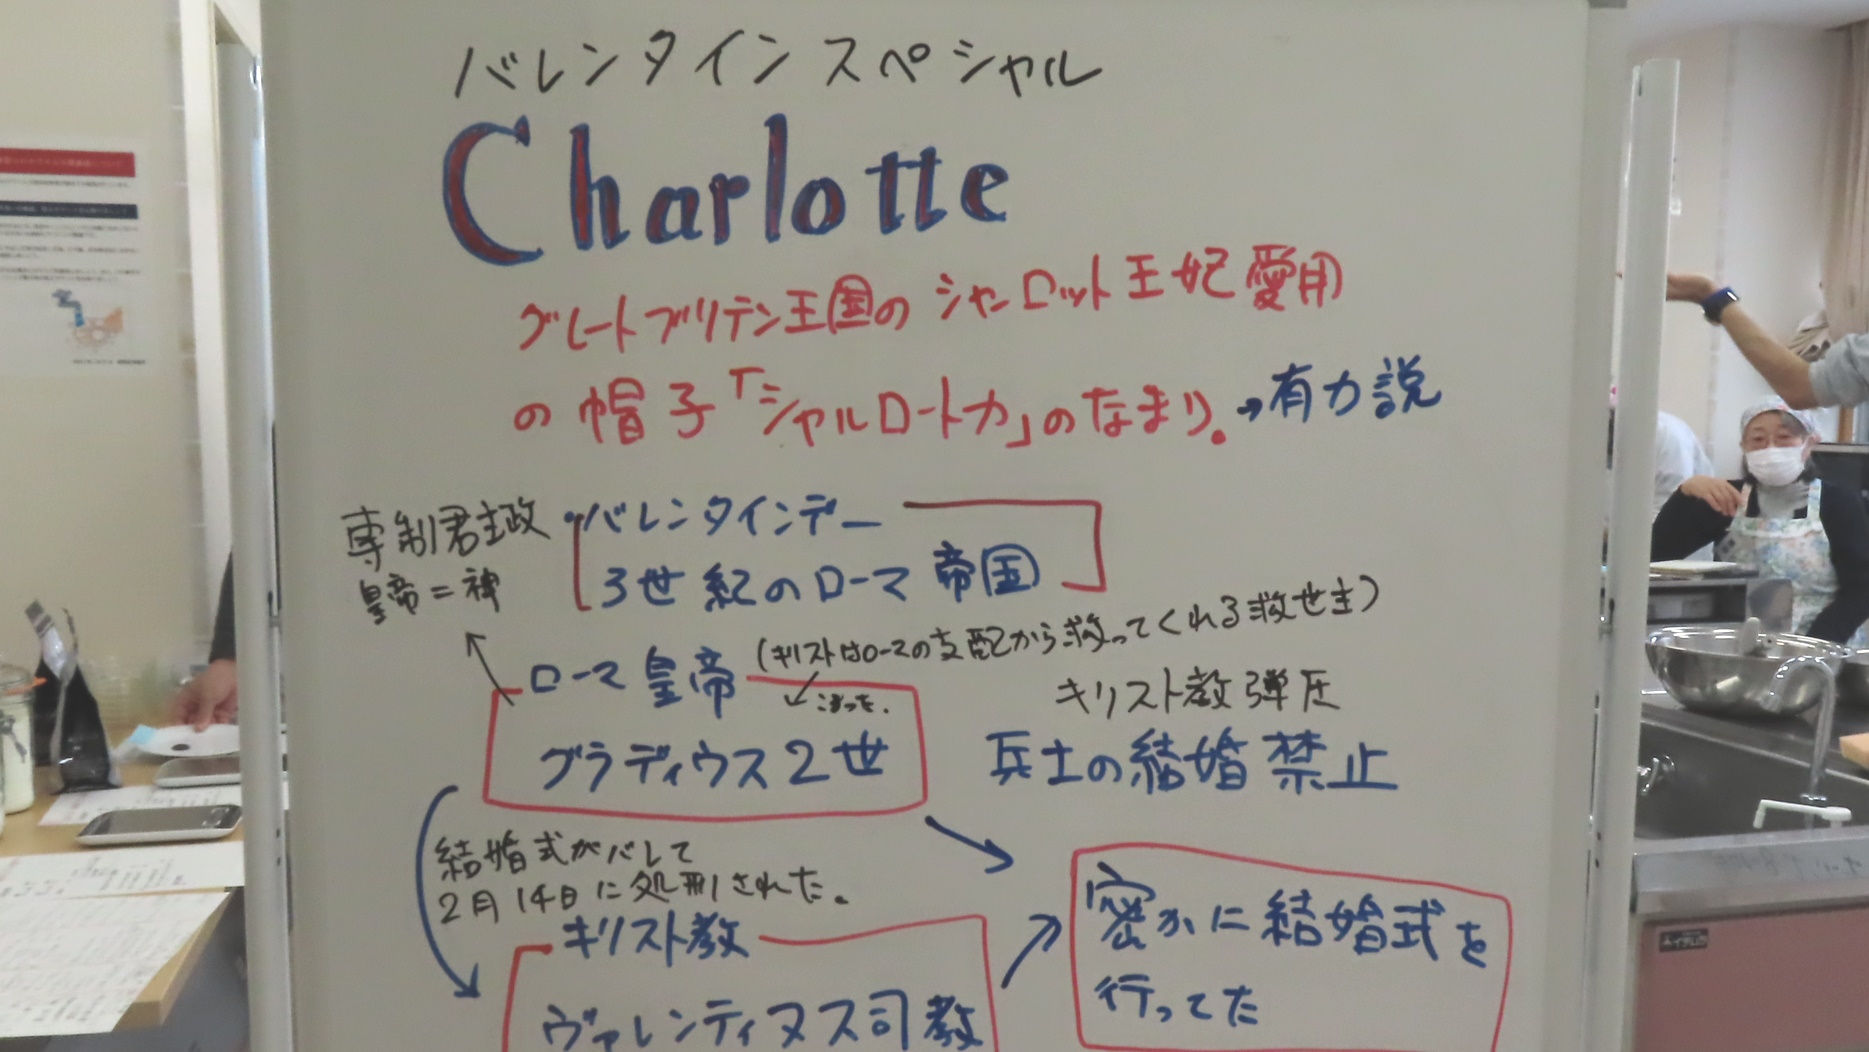 バレンタインスペシャル
Charlotte
グレートブリテン王国のシャーロット王妃愛用
の帽子「シャルロートカ」のなまり。→有力説
専制君主政
皇帝=神
バレンタインデー
3世紀のローマ帝国
(キリストはローマの支配から救ってくれる救世主)
ローマ皇帝
こまった。
キリスト教弾圧
グラディウス2世
兵士の結婚禁止
結婚式がバレて
2月14日に処刑された。
キリスト教
ヴァレンティヌス司教
密かに結婚式を
行ってた